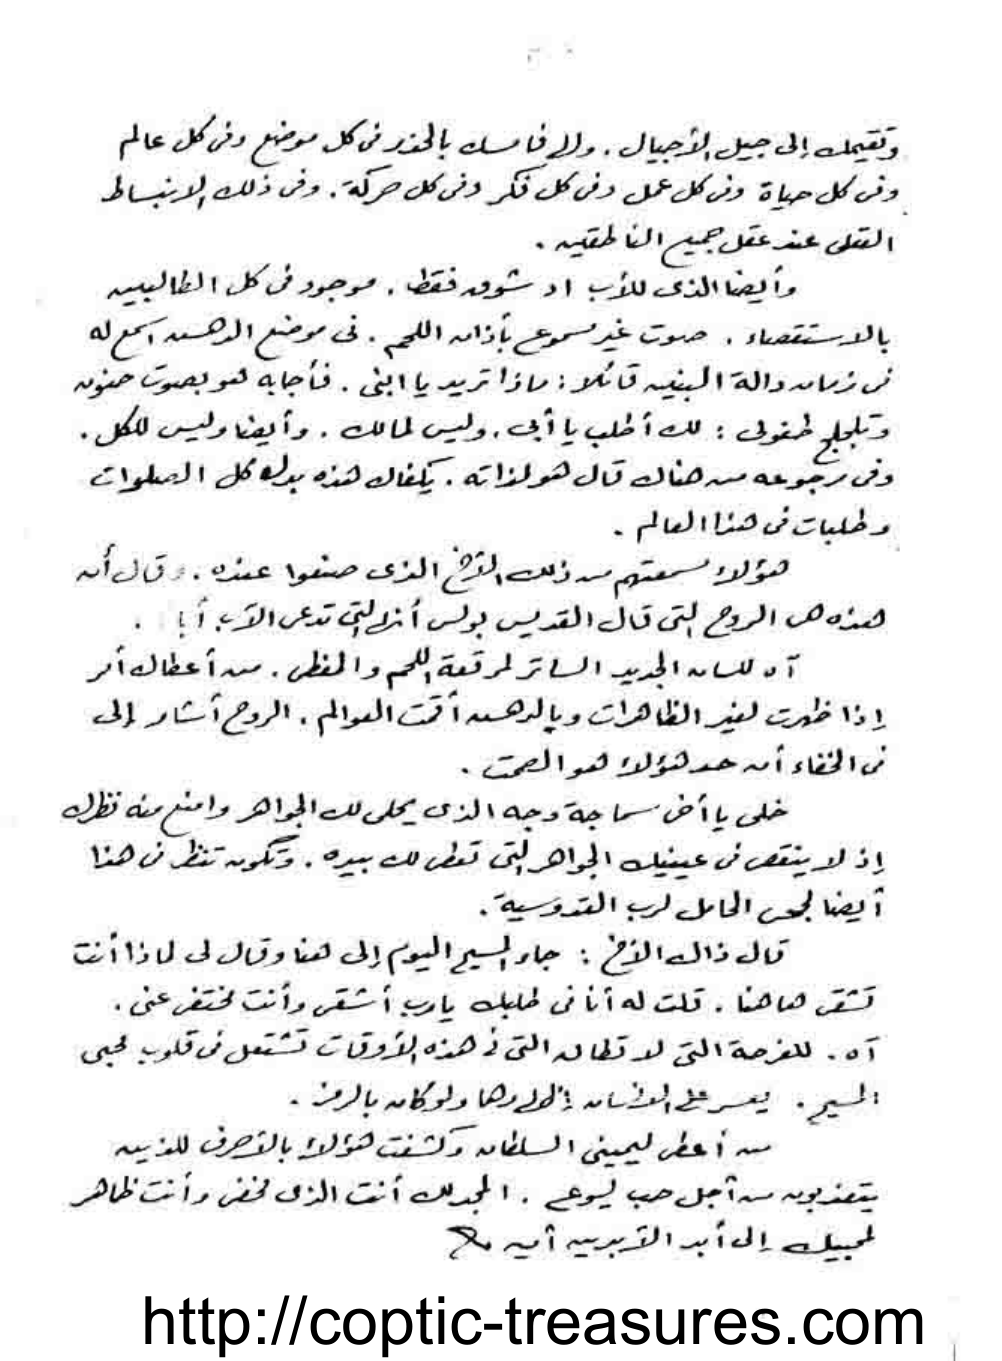 وتقيمك إلى جيل الأجيال . والى فامسك بالحذر فى كل موضع وفى كل عالم
وفى كل حياة وفى كل عمل وفى كل فكر وفى كل حركة . وفى ذلك الانبساط
العقلى عند عقل جميع الناطقين .
وأيضا الذى للأب اد شوق فقط . موجود فى كل الطالبين
بالاستقصاء . صوت غير مسموع بأذان اللحم . فى موضع الدهش اسمع له
فى زمان دالة البنين قائلا : ماذا تريد يا ابنى . فأجابه هو بصوت حنون
وتلجلج طفولى : لك أطلب يا أبى . وليس لمالك . وأيضا وليس للكل .
وفى رجوعه من هناك قال هو لذاته . يكفاك هذه بدل كل الصلوات
وطلبات فى هذا العالم .
هؤلاء سمعتهم من ذلك الأخ الذى صنعوا عنده . وقال أن
هذه هى الروح التى قال القديس بولس أنها التى تدعى الآب أبا .
آه للسان الجديد الساتر لرقعة اللحم والمغطى . من أعطاك أمر
إذا ظهرت لغير الظاهرات وبالدهش أقمت العوالم . الروح أشار إلى
فى الخفاء أن حد هؤلاء هو الصمت .
خلى يا أخى سماجة وجه الذى يحلى لك الجواهر وامنع منه نظرك
إذ لا ينقص فى عينيك الجواهر التى تعطى لك بيده . وتكون تنظر فى هذا
أيضا الحامل لرب القدوسية .
قال ذاك الأخ : جاء المسيح اليوم إلى هنا وقال لى لماذا أنت
تشقى هاهنا . قلت له أنا فى طلبك يارب أشقى وأنت مختفى عنى .
آه . للفرحة التى لا تطاق التى فى هذه الأوقات تشتعل فى قلوب محبى
المسيح . يعسر على الإنسان إظهارها ولو كان بالرمز .
من أعطى ليمينى السلطان وكشفت هؤلاء بالأحرف للذين
يتعذبون من أجل حب يسوع . المجد لك أنت الذى مخفى وأنت ظاهر
لمحبيك إلى أبد الآبدين آمين
http://coptic-treasures.com